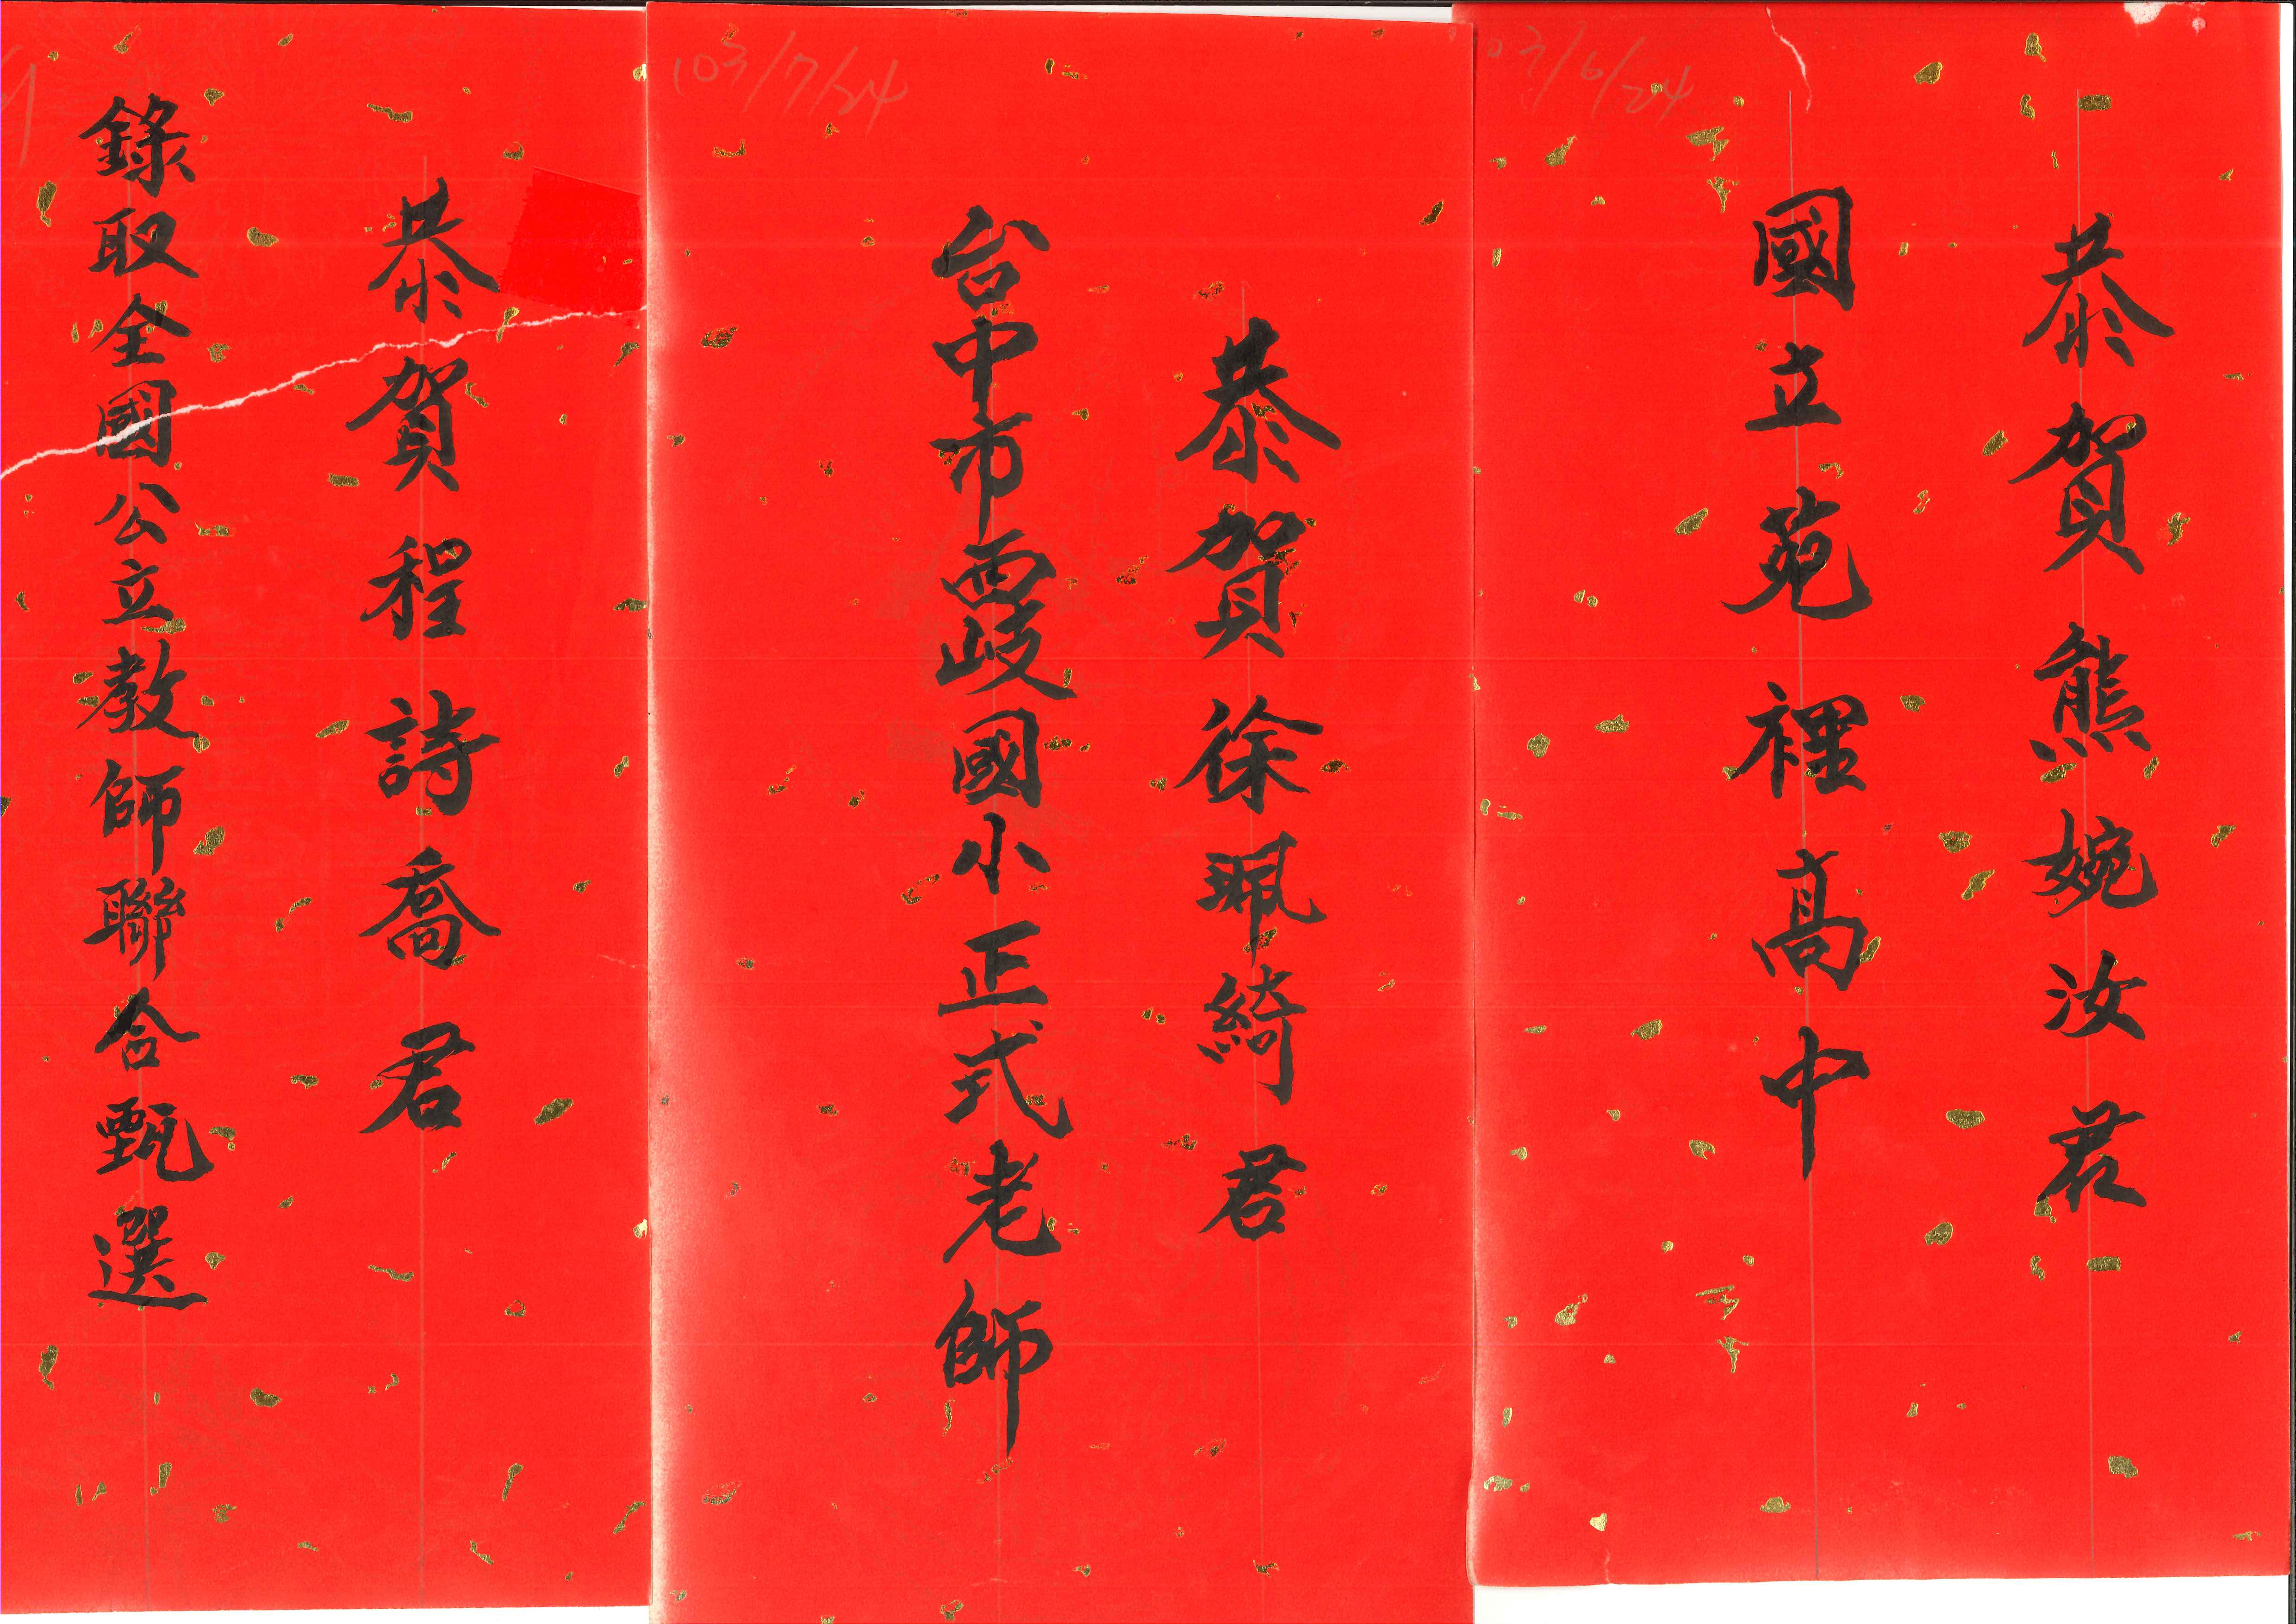 03/6/24
恭賀熊婉汝君
國立苑裡高中
103/7/24
恭賀徐珮綺君
台中市西岐國小正式老師
恭賀程詩喬君
錄取全國公立教師聯合甄選